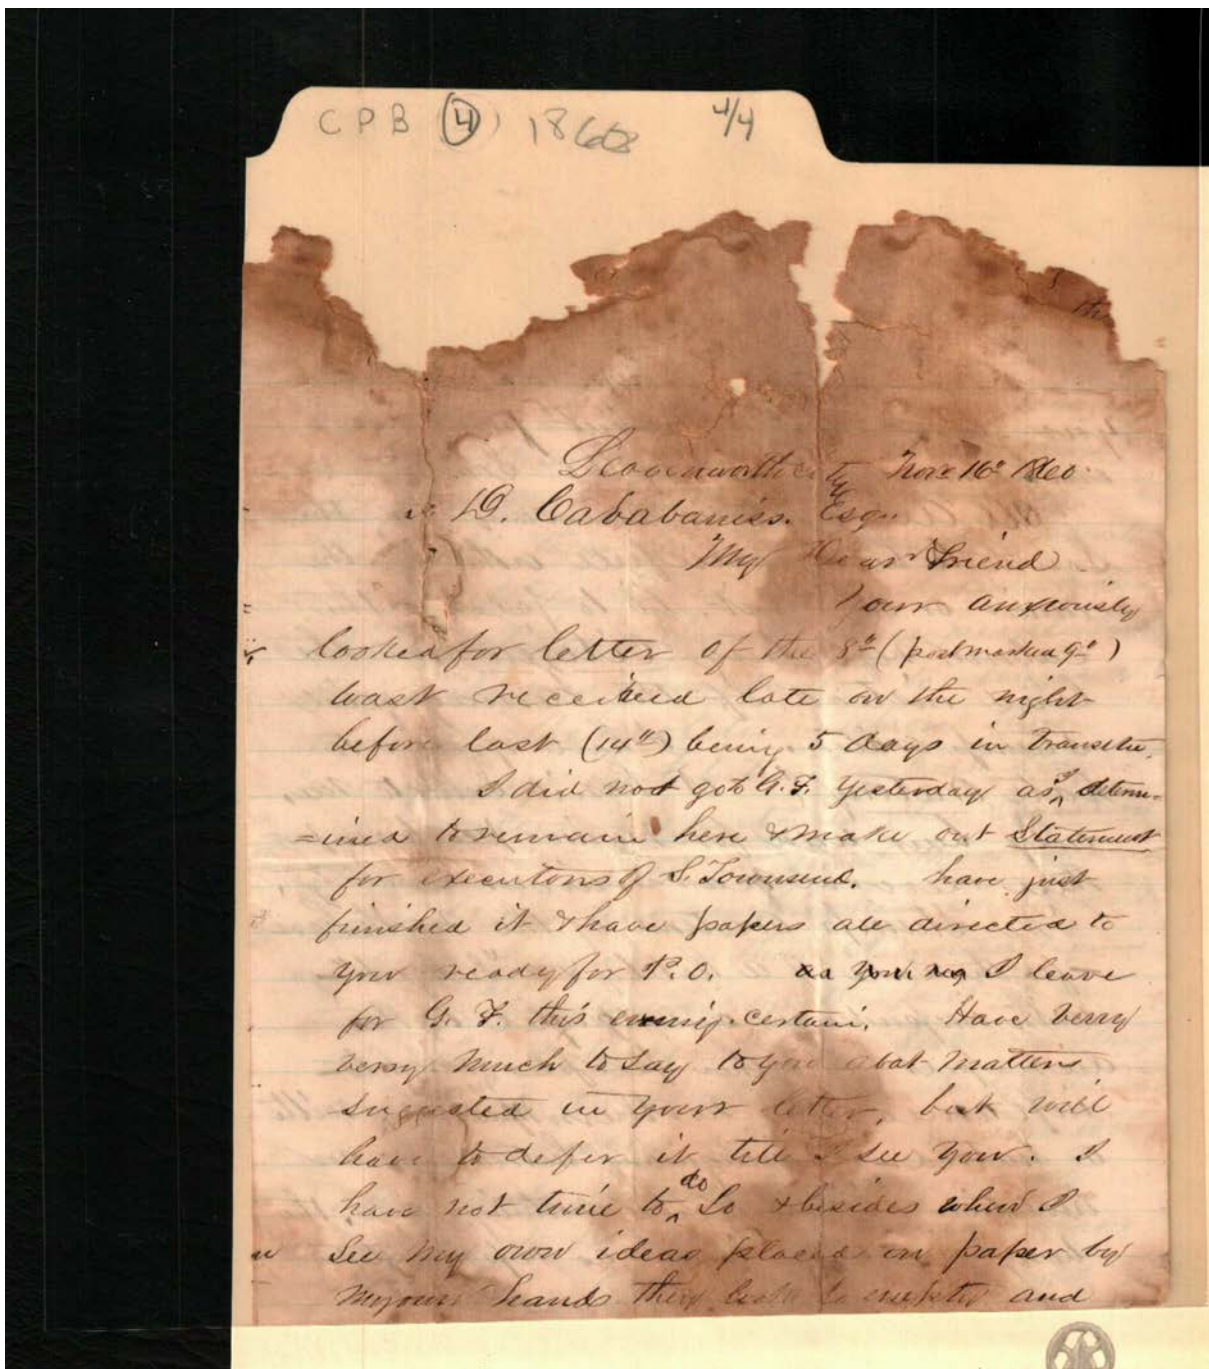 CPB (4) 1860 4/4
th
Leavenworth City Nov. 16th 1860.
D. Cababaniss. Esqr.
My Dear Friend
Your anxiously
looked for letter of the 8th (postmarked 9th)
wast received late on the night
before last (14th) being 5 days in transitu.
I did not go to G.F. Yesterday as I determ-
=ined to remain here & make out Statement
for executors of S. Townsend. have just
finished it & have papers all directed to
you ready for P.O. I leave
for G. F. this evening certain. Have verry
verry much to say to you abot matters
suggested in your letter, but will
have to defer it till I see you. I
have not time to do so & besides when I
See my own ideas placed on paper by
my own hands they look so and